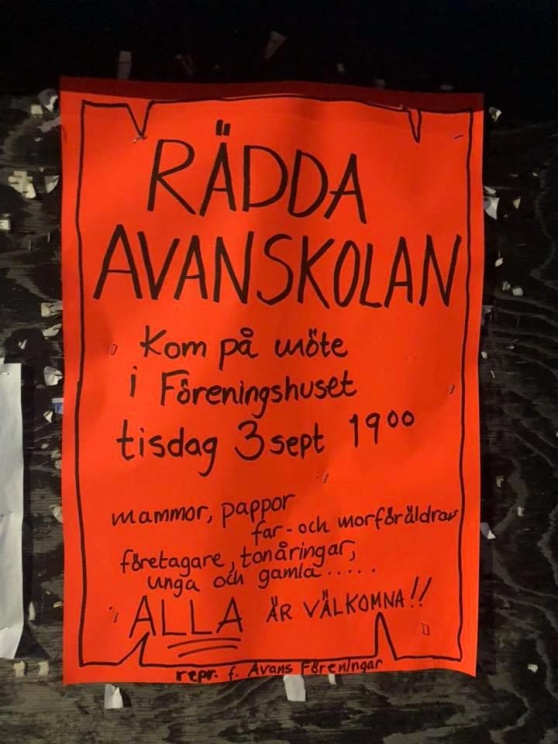 RÄDDA
AVANSKOLAN
Kom på möte
i Föreningshuset
tisdag 3 sept 19⁰⁰
mammor, pappor
far- och morföräldrar
företagare, tonåringar,
unga och gamla.....
ALLA ÄR VÄLKOMNA!!
repr. f. Avans Föreningar